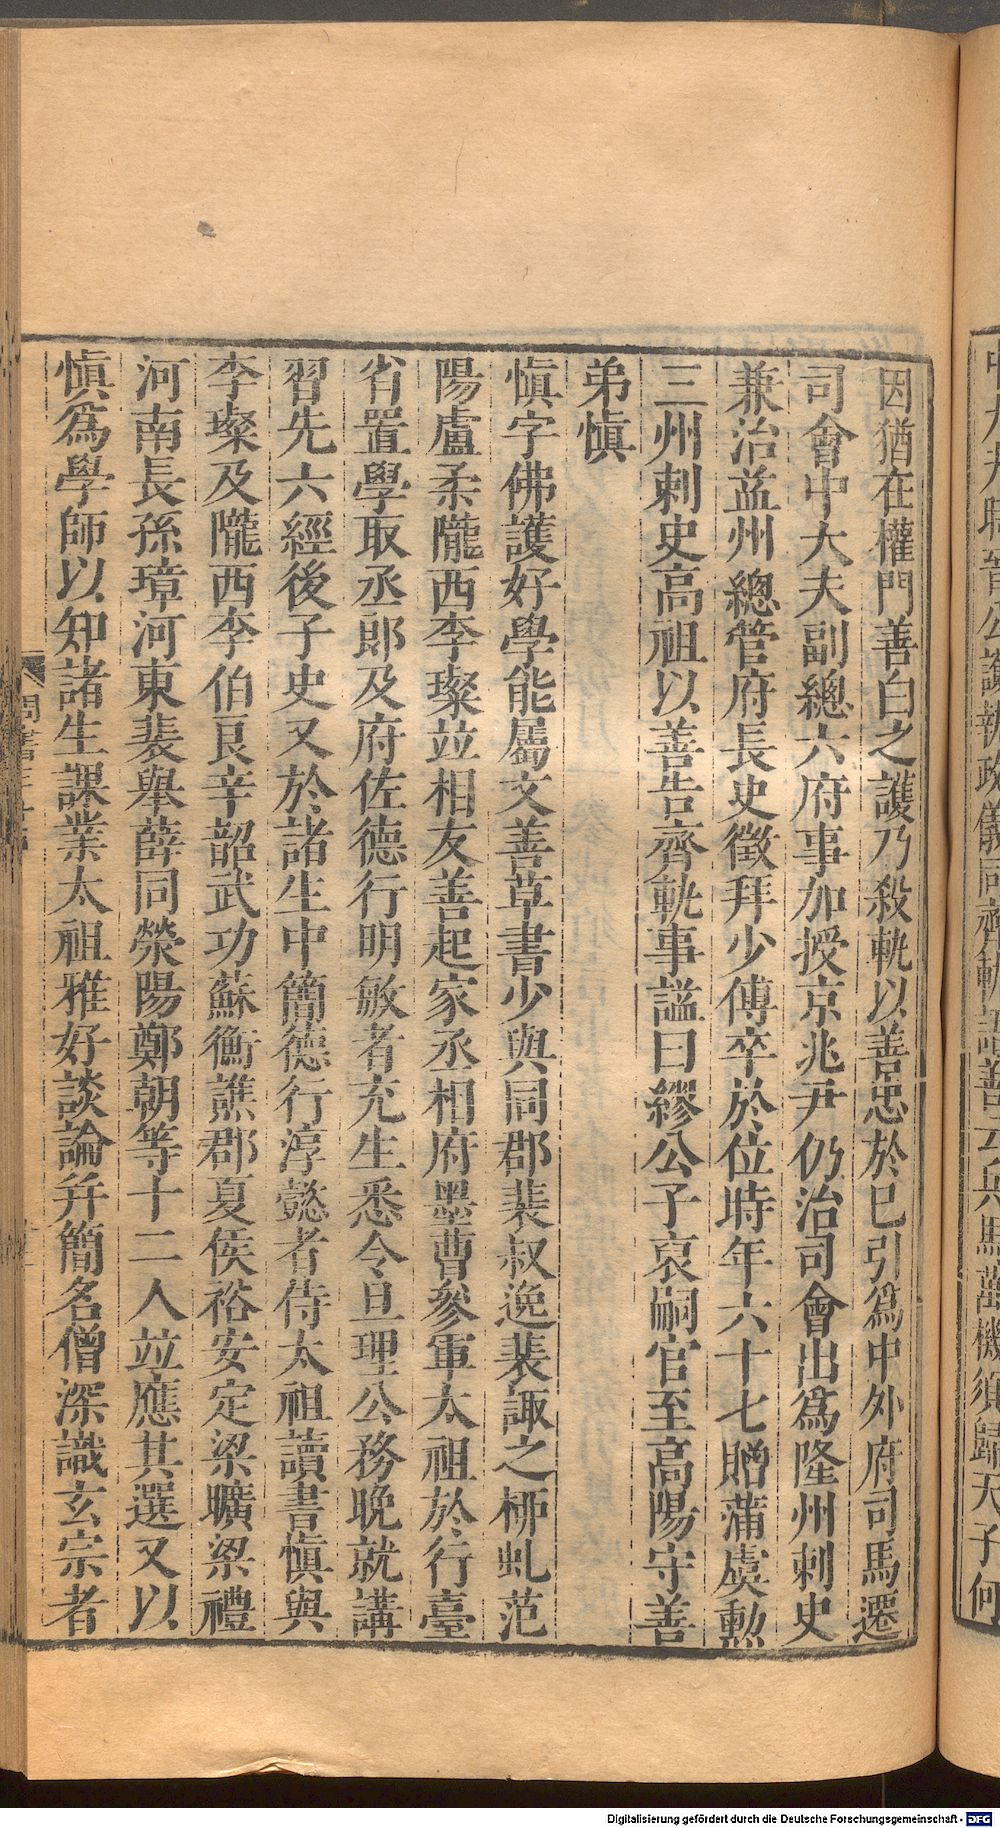 因猶在權門善白之護乃殺軌以善忠於巳引爲中外府司馬遷
司會中大夫副總六府事加授京兆尹仍治司會出爲隆州刺史
兼治益州總管府長史徵拜少傅卒於位時年六十七贈蒲虞勲
三州刺史高祖以善告齊軌事諡曰繆公子哀嗣官至高陽守善
弟愼
愼字佛護好學能屬文善草書少與同郡裴叔逸裴諏之柳虬范
陽盧柔隴西李璨竝相友善起家丞相府墨曹參軍太祖於行臺
省置學取丞郎及府佐德行明敏者充生悉令旦理公務晚就講
習先六經後子史又於諸生中簡德行淳懿者侍太祖讀書愼與
李璨及隴西李伯良辛韶武功蘇衡譙郡夏侯裕安定梁曠梁禮
河南長孫璋河東裴舉薛同滎陽鄭朝等十二人竝應其選又以
愼爲學師以知諸生課業太祖雅好談論幷簡名僧深識玄宗者
Digitalisierung gefördert durch die Deutsche Forschungsgemeinschaft - DFG